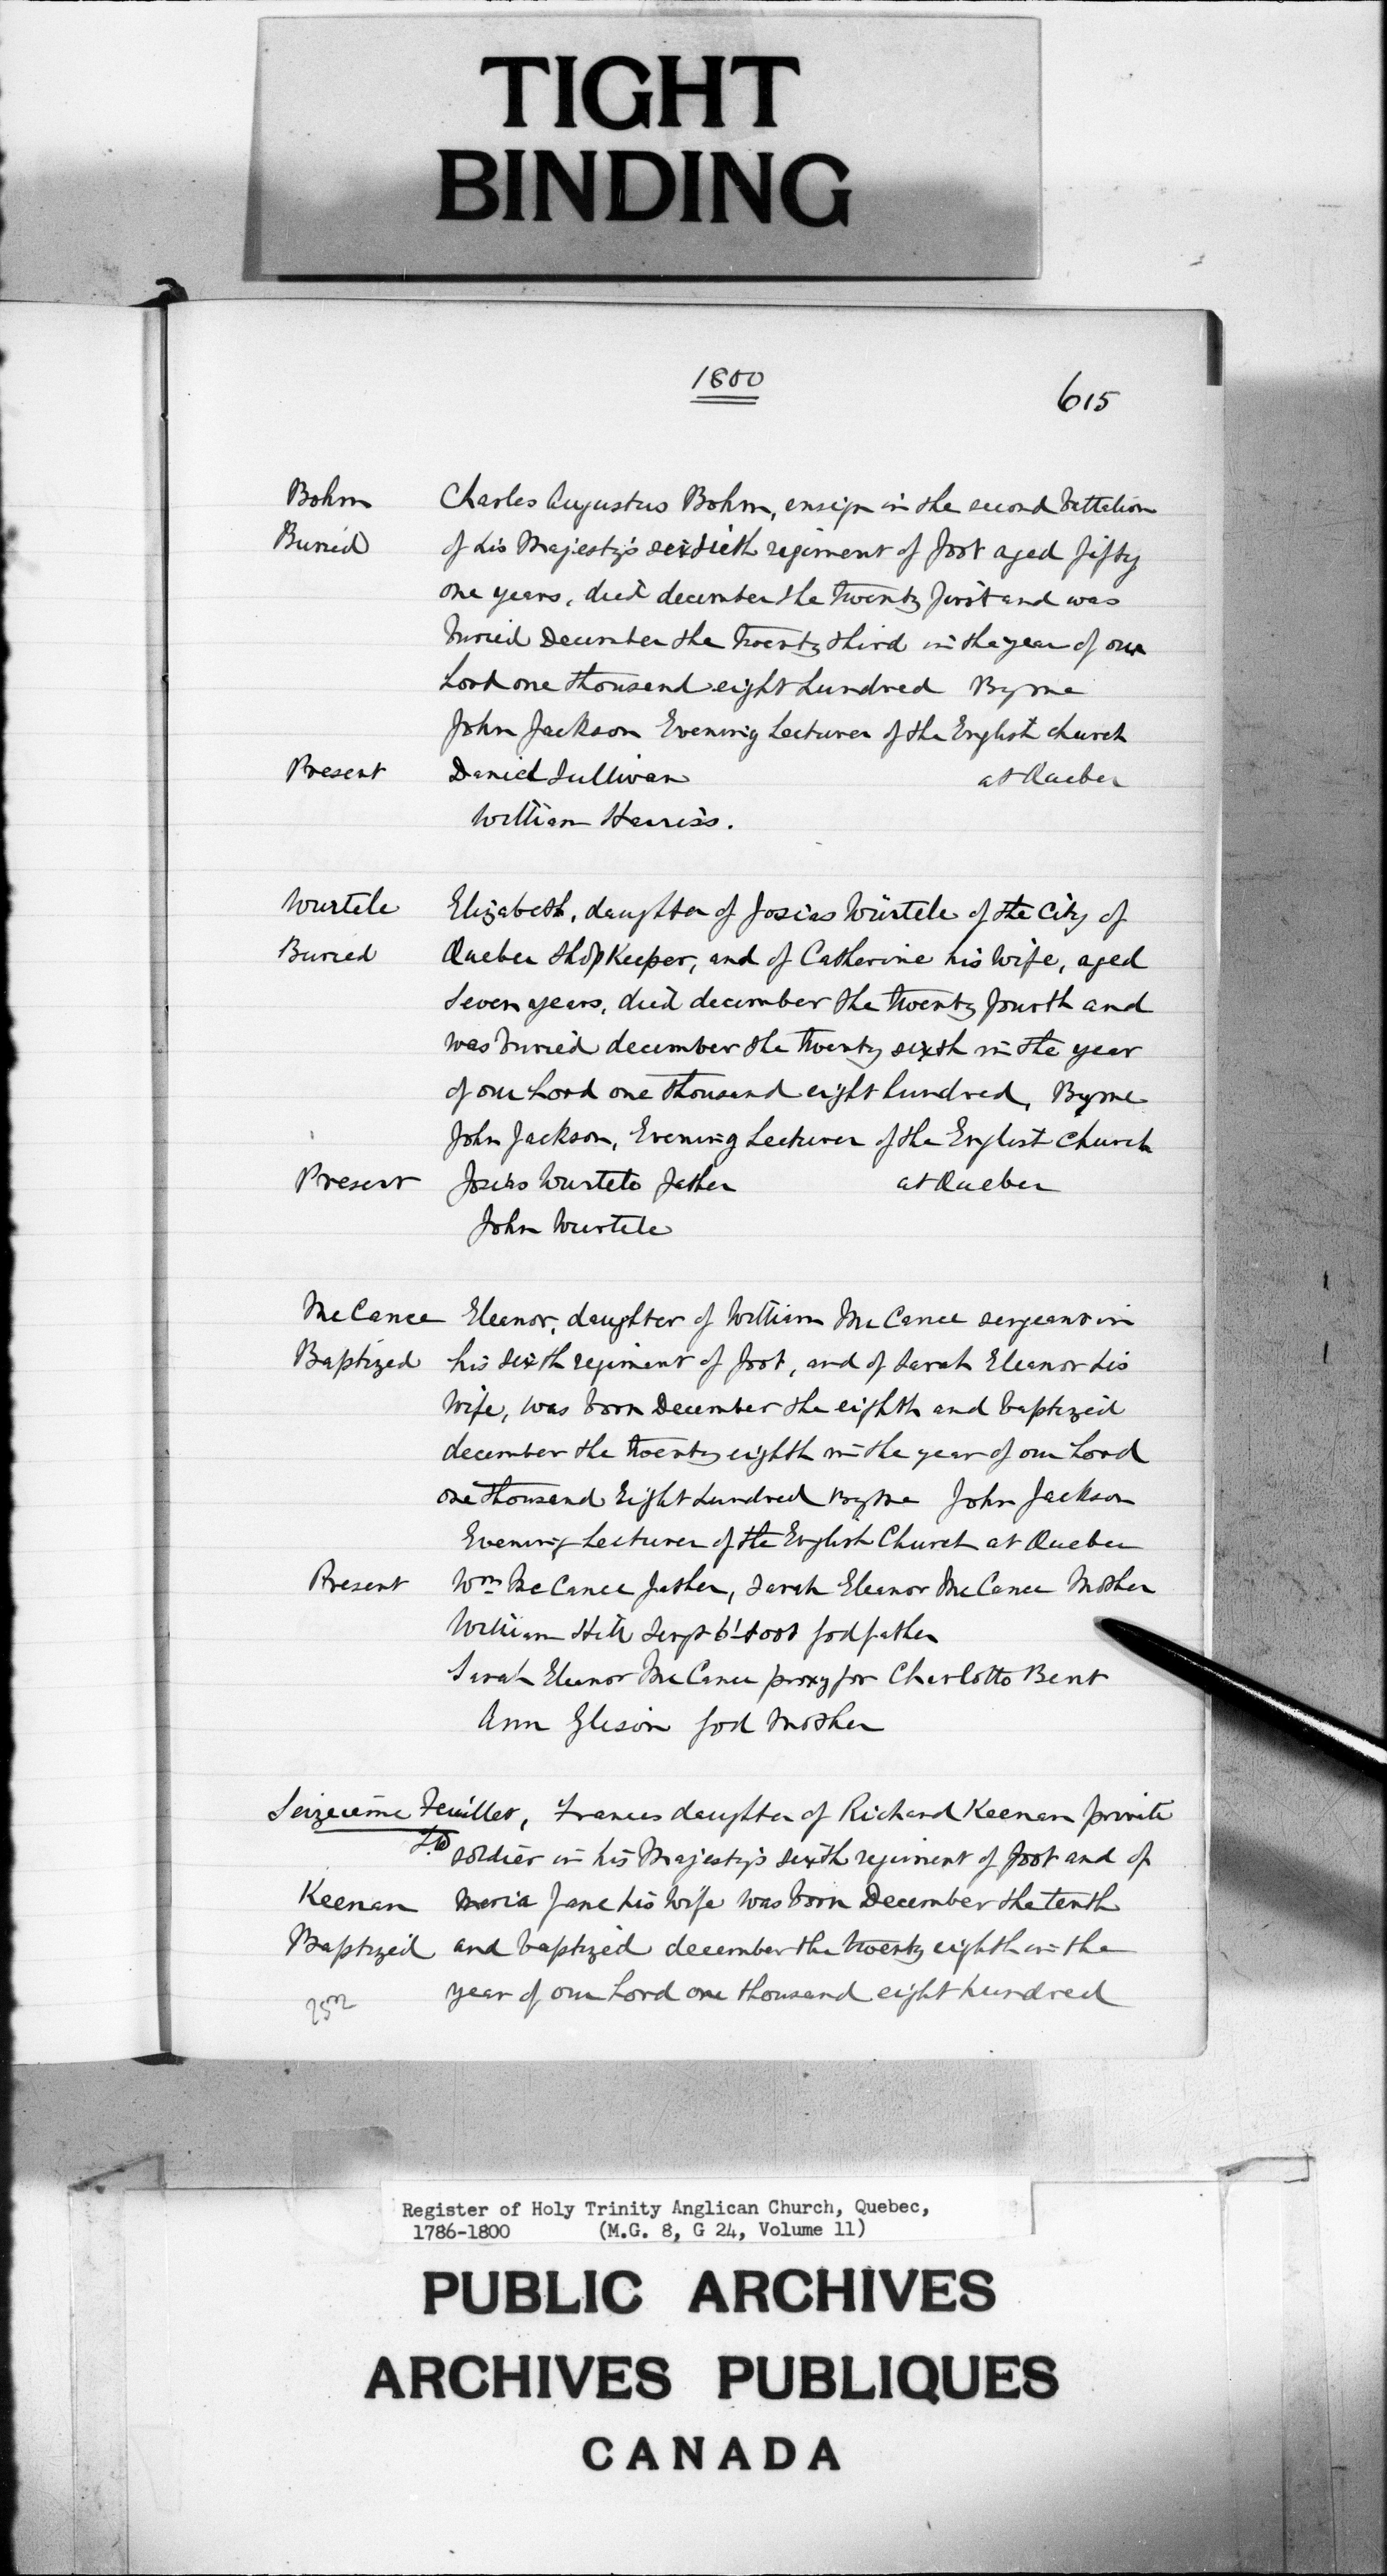 TIGHT
BINDING
1800
615
Bohm Charles Augustus Bohm, ensign in the second battalion
Buried of his Majesty's sixtieth regiment of foot aged fifty
one years, died december the twenty first and was
buried December the twenty third in the year of our
Lord one thousand eight hundred By me
John Jackson Evening Lecturer of the English church
Present Daniel Sullivan at Quebec
William Harriss.
Wurtele Elizabeth, daughter of Josias Würtele of the City of
Buried Quebec ShopKeeper, and of Catherine his Wife, aged
Seven years, died december the twenty fourth and
was buried december the twenty sixth in the year
of our Lord one thousand eight hundred, By me
John Jackson, Evening Lecturer of the English church
Present Josias Wurtele father at Quebec
John Wurtele
McCance Eleanor, daughter of William McCance sergeant in
Baptized his sixth regiment of foot, and of Sarah Eleanor his
Wife, was born December the eighth and baptized
december the twenty eighth in the year of our Lord
one thousand Eight hundred By me John Jackson
Evening Lecturer of the English Church at Quebec
Present Wm McCance father, Sarah Eleanor McCance Mother
William Hill Sergt 6t foot godfather
Sarah Eleanor McCance proxy for Charlotte Bent
Ann Gleson god Mother
Seizeième Feuillet, Frances daughter of Richard Keenan private
soldier in his Majesty's sixth regiment of foot and of
Keenan Maria Jane his Wife was born December the tenth
Baptized and baptized december the twenty eighth in the
year of our Lord one thousand eight hundred
Register of Holy Trinity Anglican Church, Quebec,
1786-1800 (M.G. 8, G 24, Volume 11)
PUBLIC ARCHIVES
ARCHIVES PUBLIQUES
CANADA